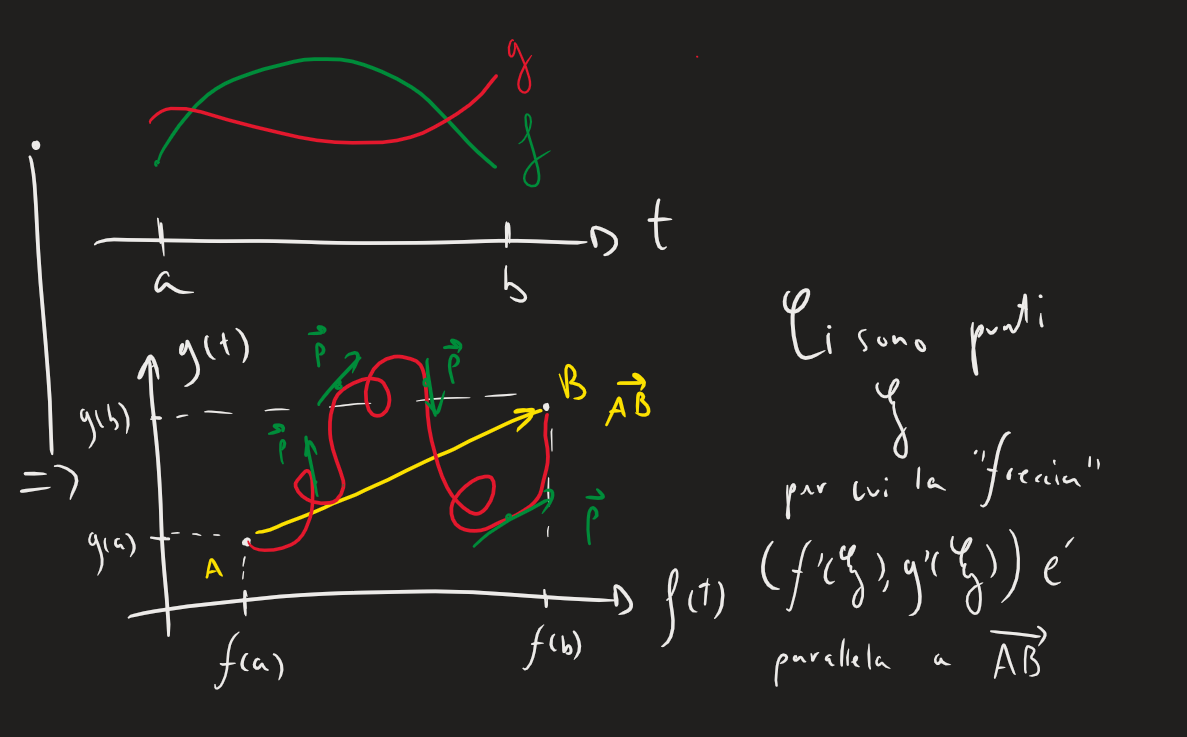 g
f
t
a b
g(t)
p p
g(b) B AB
p
=> p
g(a) A
f(t)
f(a) f(b)
Ci sono punti
ξ
per cui la "freccia"
(f'(ξ), g'(ξ)) é
parallela a AB